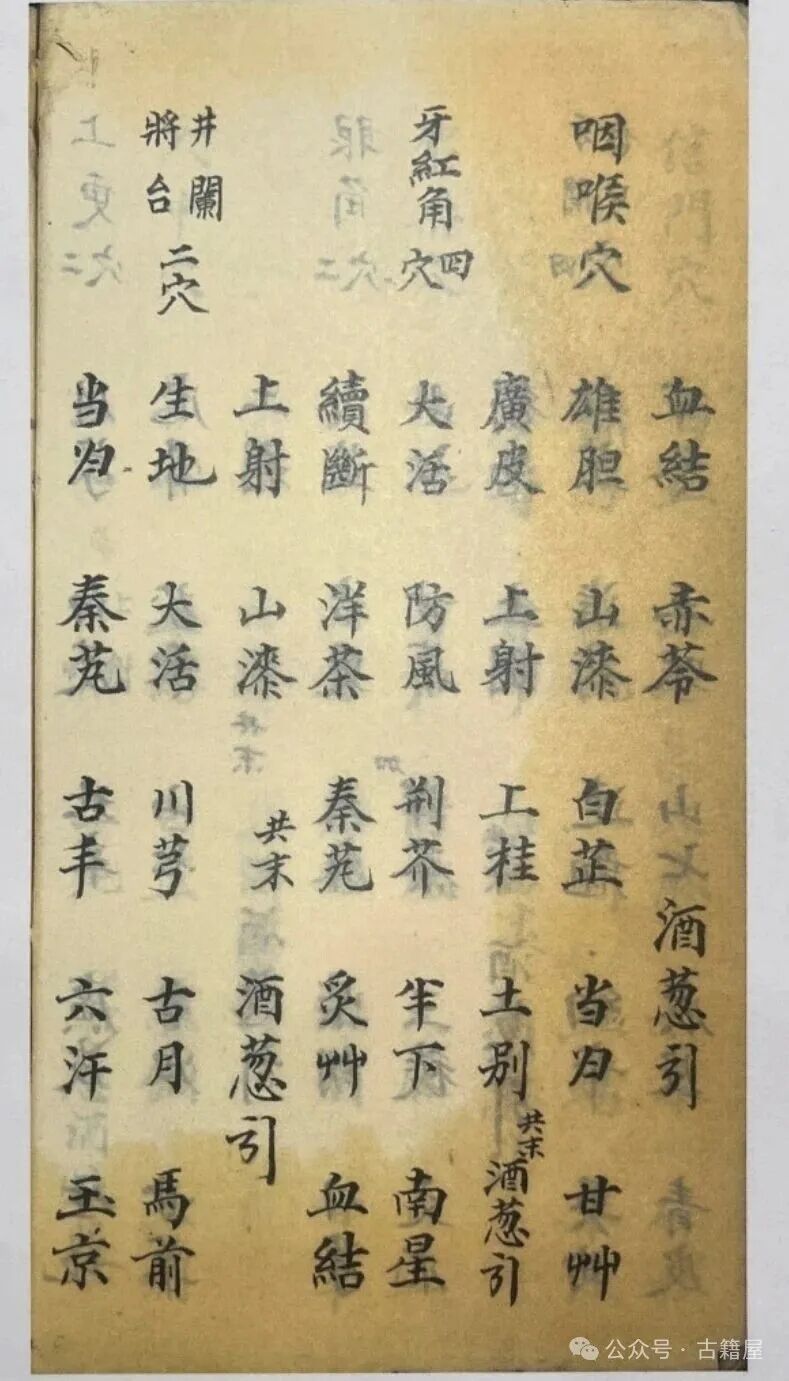 血結 赤苓 酒葱引
咽喉穴 雄胆 山漆 白芷 当归 甘艸
廣皮 上射 上桂 土别 共末 酒葱引
牙紅角四穴 大活 防風 荆芥 半下 南星
續斷 洋茶 秦艽 炙艸 血結
上射 山漆 共末 酒葱引
井闌 將台 二穴 生地 大活 川芎 古月 馬前
当归 秦艽 古丰 六汗 玉京
公众号·古籍屋